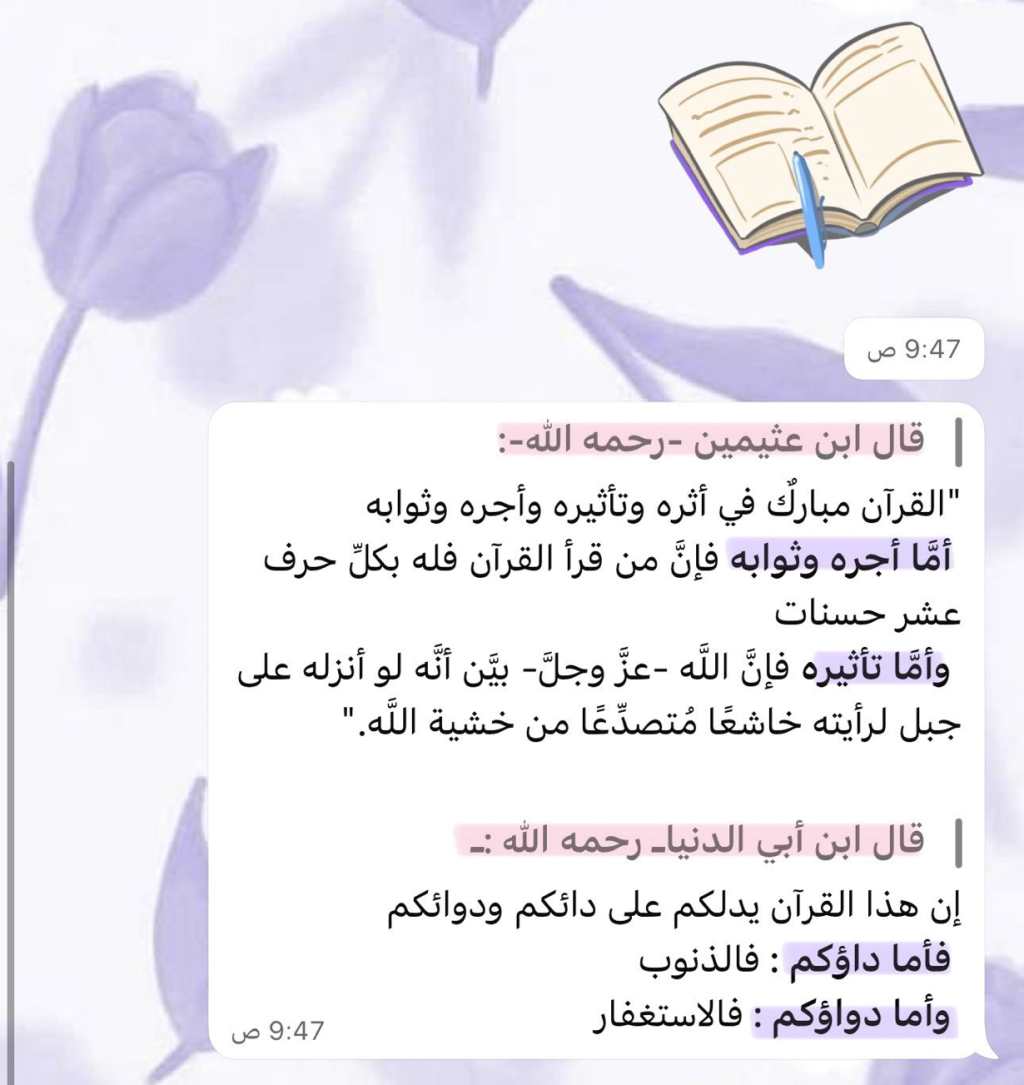 9:47 ص
قال ابن عثيمين -رحمه الله-:
"القرآن مباركٌ في أثره وتأثيره وأجره وثوابه
أمَّا أجره وثوابه فإنَّ من قرأ القرآن فله بكلِّ حرف
عشر حسنات
وأمَّا تأثيره فإنَّ اللَّه -عزَّ وجلَّ- بيَّن أنَّه لو أنزله على
جبل لرأيته خاشعًا مُتصدِّعًا من خشية اللَّه."
قال ابن أبي الدنياـ رحمه الله :ـ
إن هذا القرآن يدلكم على دائكم ودوائكم
فأما داؤكم : فالذنوب
وأما دواؤكم : فالاستغفار
9:47 ص